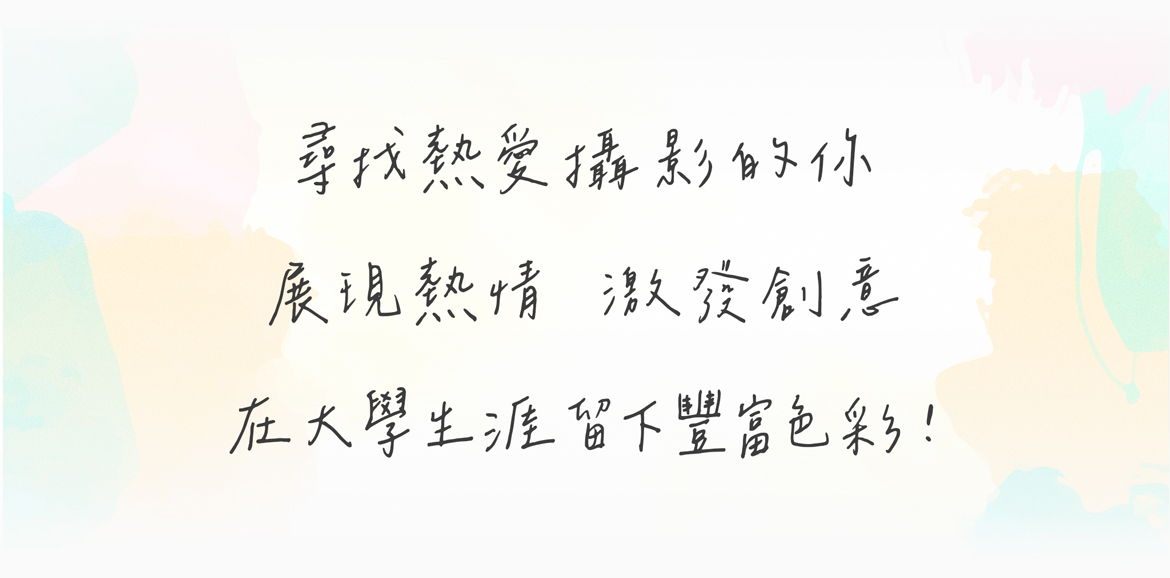 尋找熱愛攝影的你
展現熱情 激發創意
在大學生涯留下豐富色彩!